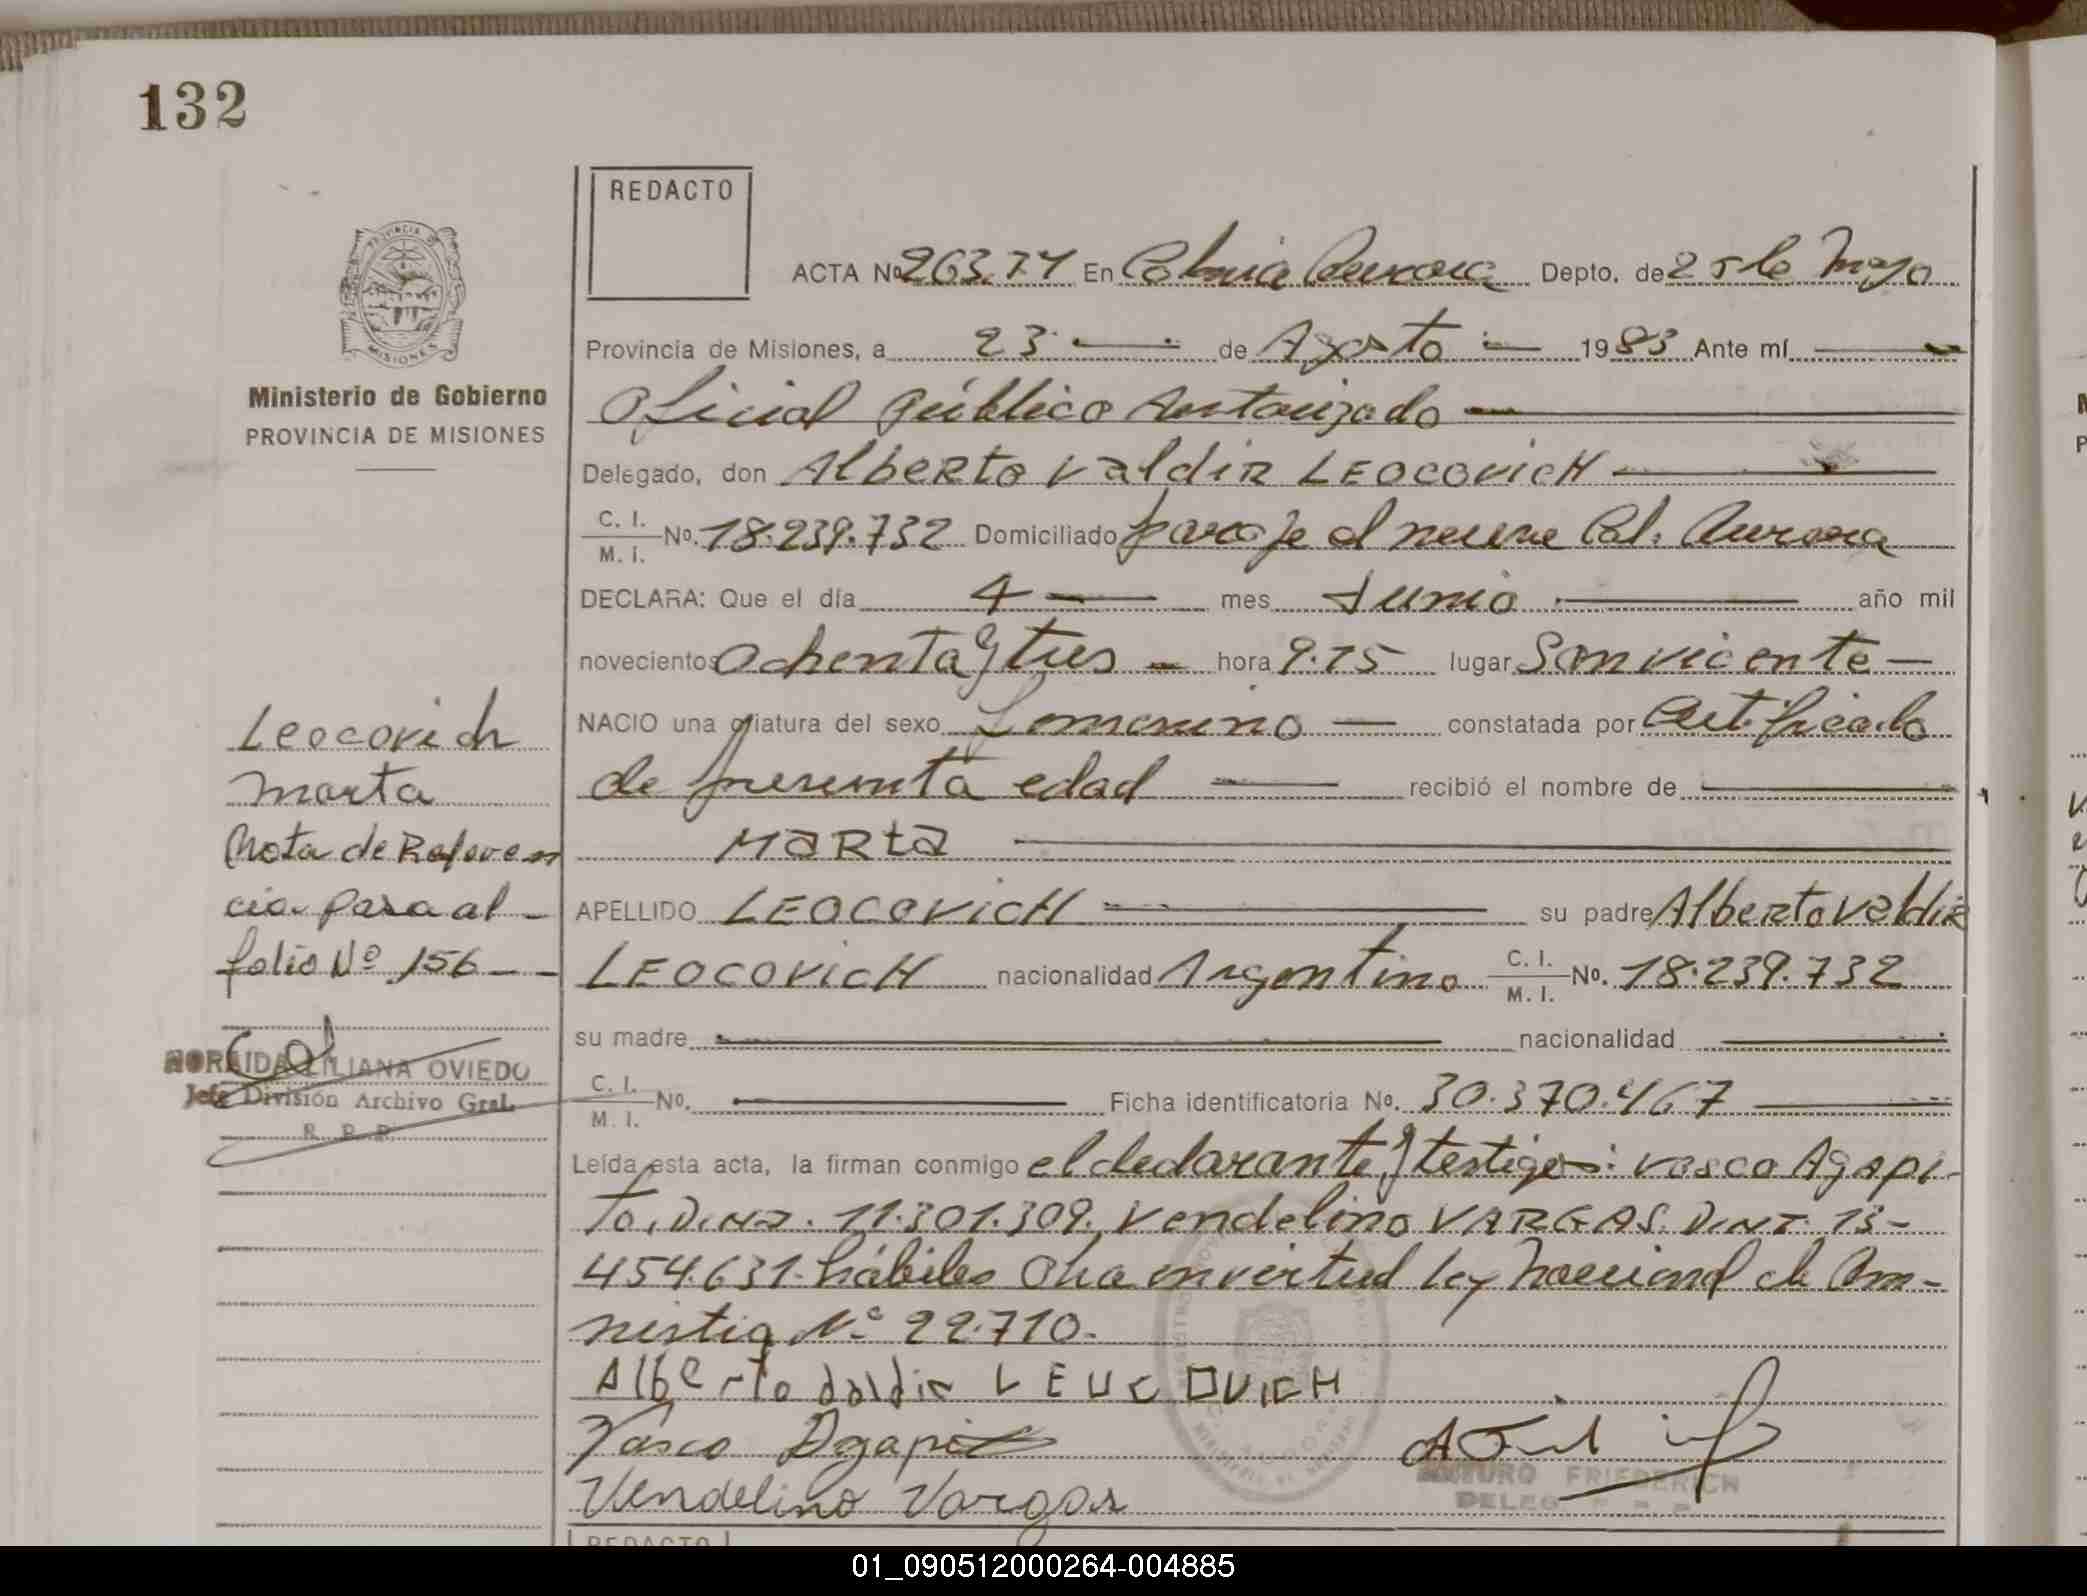 132
REDACTO
ACTA Nº 263.74 En Colonia Aurora Depto. de 25 de Mayo
Provincia de Misiones, a 23 de Agosto 1983 Ante mí
Oficial Público Autorizado
Delegado, don Alberto Valdir LEOCOVICH
C. I. M. I. Nº. 18.239.732 Domiciliado paraje el Col. Aurora
DECLARA: Que el día 4 mes Junio año mil
novecientos Ochenta y tres hora 9.15 lugar San vicente
NACIO una criatura del sexo femenino constatada por Certificado
de presunta edad recibió el nombre de
MARta
APELLIDO LEOCOVICH su padre Alberto Valdir
LEOCOVICH nacionalidad Argentino C. I. M. I. Nº. 18.239.732
su madre nacionalidad
C. I. M. I. Nº. Ficha identificatoria Nº. 30.370.467
Leída esta acta, la firman conmigo el declarante y testigos: Vasco Agapi-
to, D.N.I. 11.301.309. Vendelino VARGAS. D.N.I. 13-
454.631. hábiles en virtud ley Nacional de Am-
nistia Nº 22.710.
Alberto Valdir LEUCOVICH
Vasco Agapito
Vendelino Vargas
ARTURO FRIEDERICH
DELEG
Ministerio de Gobierno
PROVINCIA DE MISIONES
Leocovich
Marta
Nota de Referen
cia para al
folio Nº 156
NORAIDA LILIANA OVIEDO
Jefe División Archivo Gral.
R. P. P.
REDACTO
01_090512000264-004885